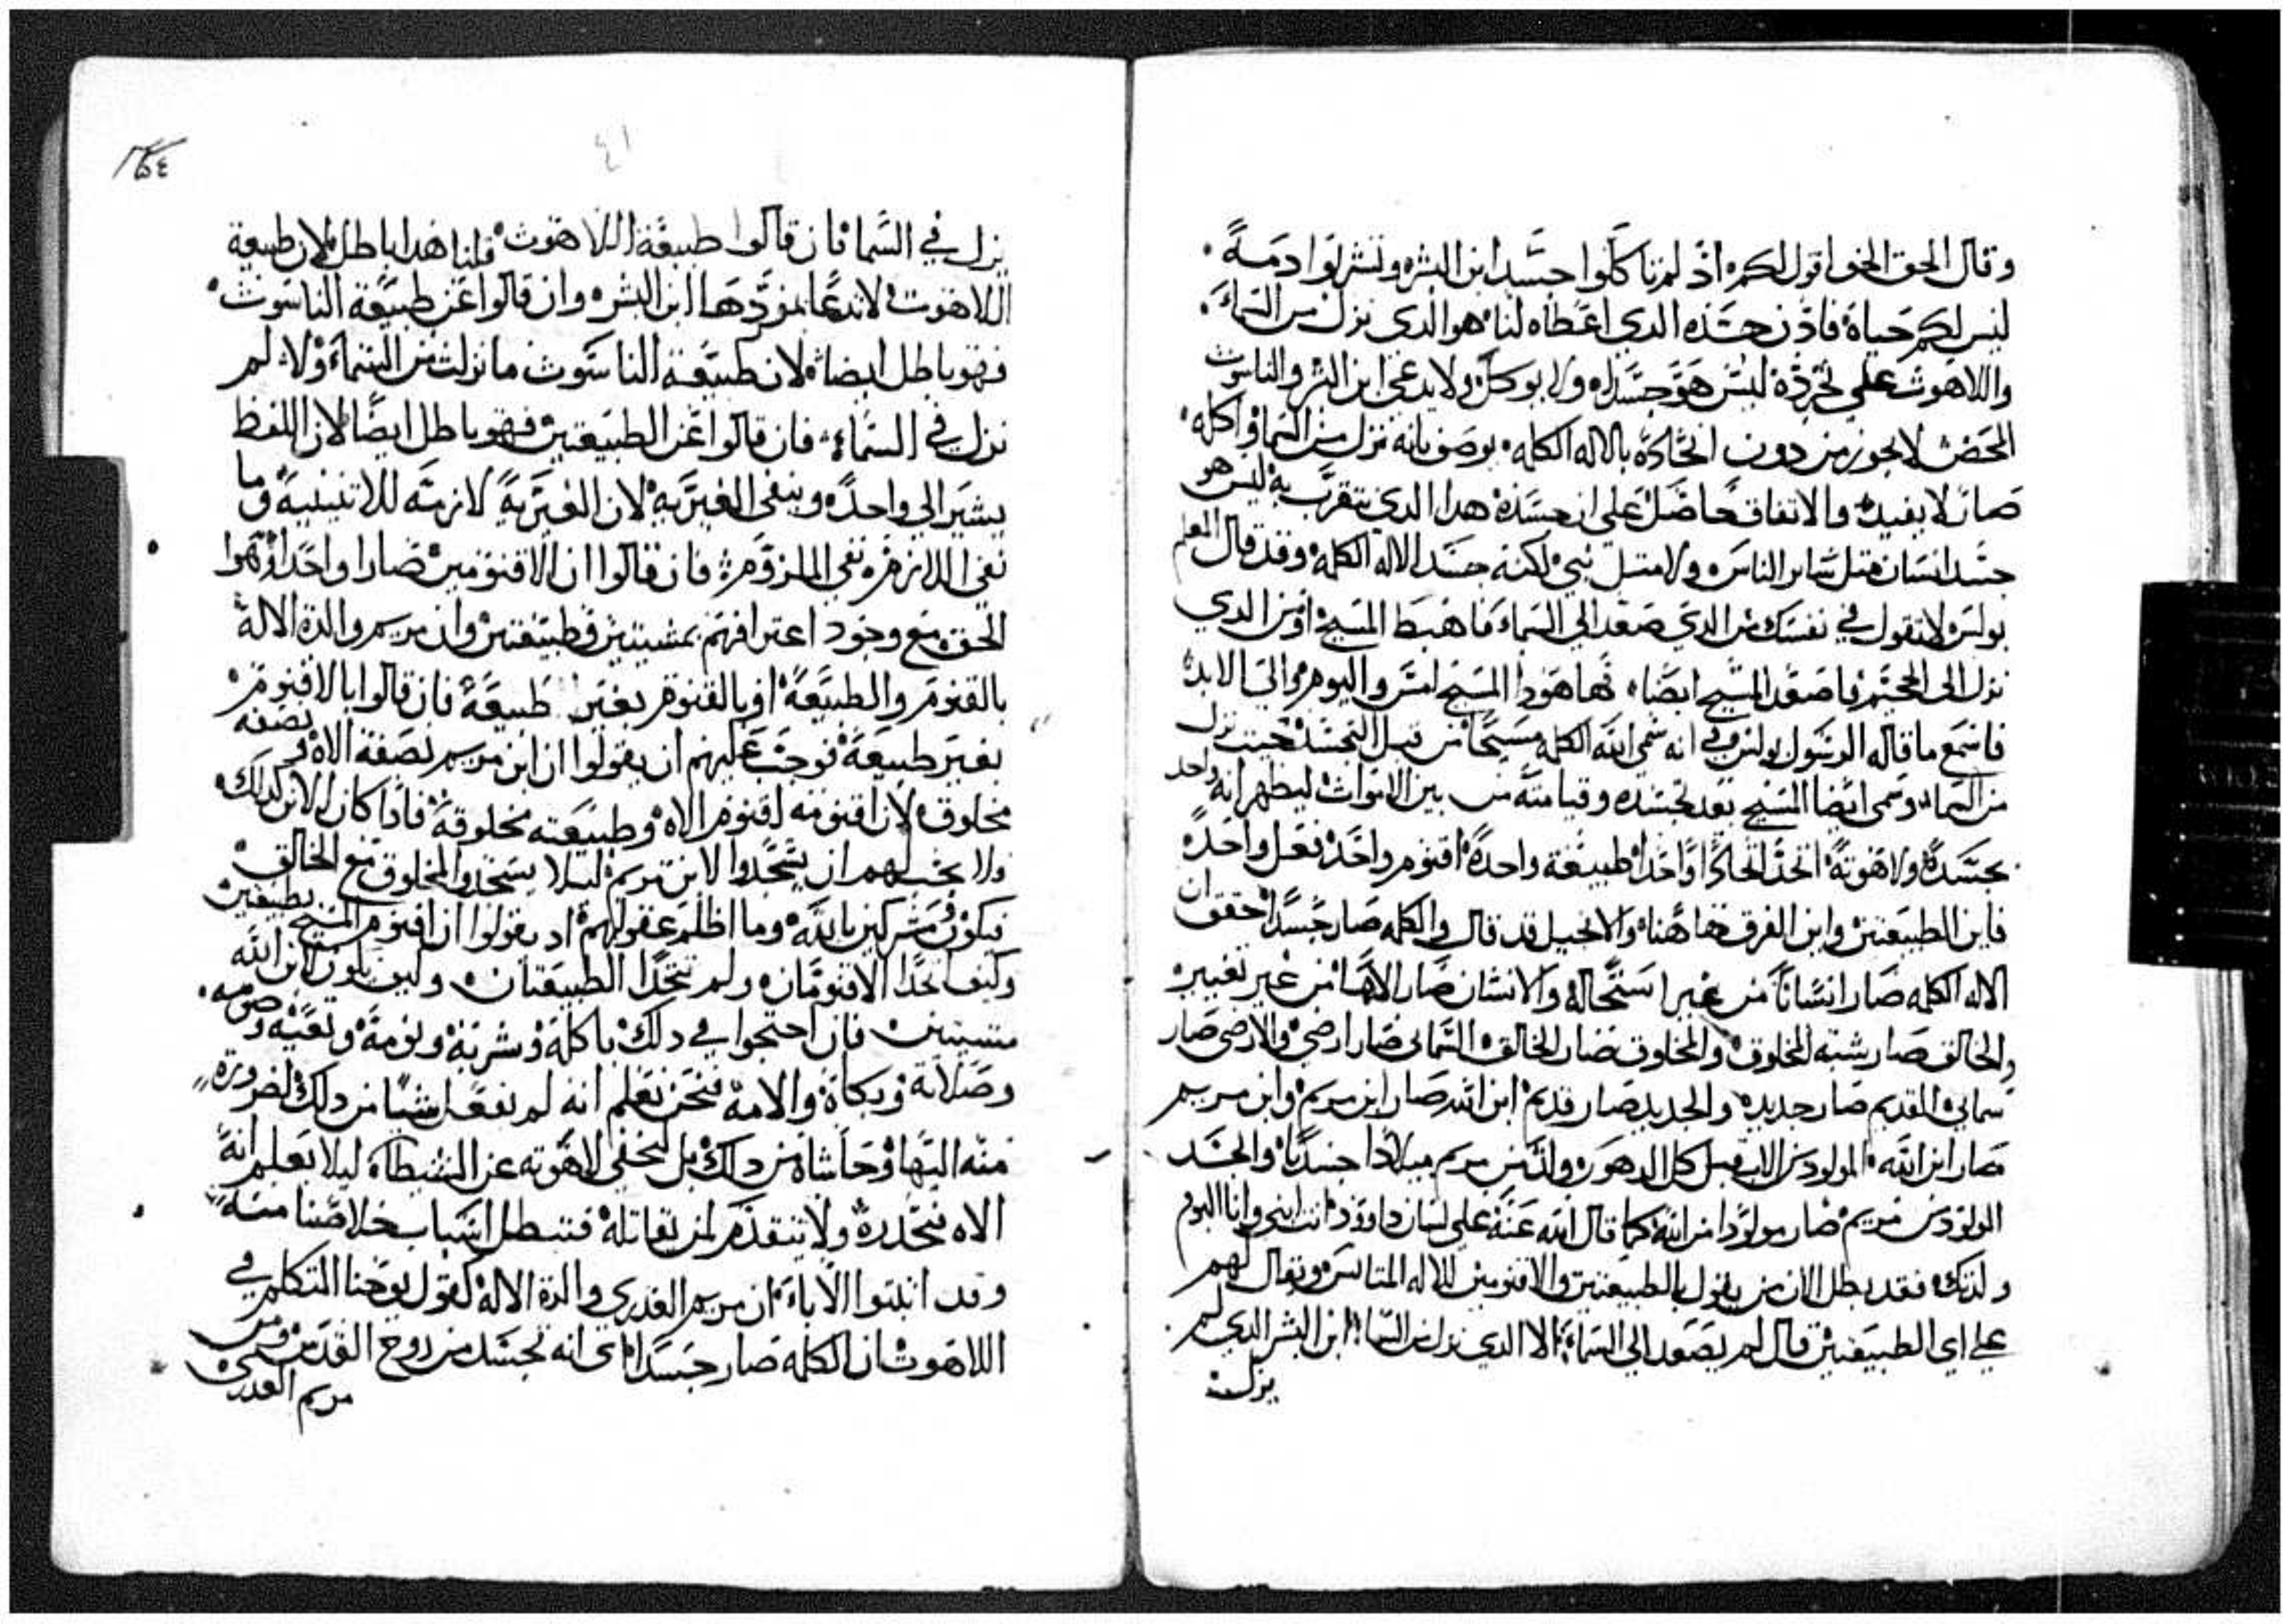 وقال الحق الحق اقول لكم اذ لم تاكلوا جسد ابن البشر وتشربوا دمه
ليس لكم حياة فاذن جسده الدي اعطاه لنا هو الدي نزل من السماء
واللاهوت علي تجرده ليس هو جسد له ولا يوكل ولا يدعي ابن البشر والناسوت
المحض لا يجوز من دون اتحاده بالاله الكلمه يوصف بانه نزل من السما واكله
صار لا يفيد والاتفاق حاصل علي ان جسده هدا الدي نتقرب به ليس هو
جسد انسان مثل ساير الناس ولا مثل نبي لكنه جسد الاله الكلمه وقد قال المعلم
بولس لا تقول في نفسك من الدي صعد الي السماء فاهبط المسيح او من الدي
نزل الي الجحيم فاصعد المسيح ايضا فها هودا المسيح امس واليوم والي الابد
فاسمع ما قاله الرسول بولس انه سمي ابن الله الكلمه مسيحا من قبل التجسد حيت نزل
من السما وسمي ايضا المسيح بعد تجسده وقيامته من بين الاموات ليظهر انه واحد
بجسده ولاهوته اتحد اتحادا واحدا طبيعة واحدة اقنوم واحد فعل واحد
فاين الطبيعتين واين الفرق هاهنا والانجيل قد قال والكلمه صار جسدا حقق ان
الاله الكلمه صار انسانا من غير استحالة والانسان صار الاها من غير تغيير
والخالق صار شبه المخلوق والمخلوق صار الخالق السماي صار ارضي والارضي صار
سماي القديم صار جديد والجديد صار قديم ابن الله صار ابن مريم وابن مريم
صار ابن الله المولود من الاب قبل كل الدهور ولد من مريم ميلادا جسديا والجسد
المولود من مريم صار مولودا من الله كما قال الله عنه علي لسان داوود انت ابني وانا اليوم
ولدتك فقد بطل الان من يقول بالطبيعتين والاقنومين للاله المتانس ويقال لهم
علي اي الطبيعتين قال لم يصعد الي السماء الا الدي نزل من السما ابن البشر الدي لم
يزل
٤١
يزل في السما فان قالوا طبيعة اللاهوت قلنا هدا باطل لان طبيعة
اللاهوت لا تدعا بمفردها ابن البشر وان قالوا عن طبيعة الناسوت
فهو باطل ايضا لان طبيعة الناسوت ما نزلت من السماء ولا لم
تزل في السماء فان قالوا عن الطبيعتين فهو باطل ايضا لان اللفظ
يشير الي واحد وينفي الغيريه لان الغيرية لازمة للاتنينية وما
نفي اللازم نفي الملزوم فان قالوا ان الاقنومين صارا واحدا
الحق مع وجود اعترافهم بمشيتين وطبيعتين وان مريم والدة الاله
بالقنوم والطبيعة او بالقنوم بغير طبيعة فان قالوا بالاقنوم
بغير طبيعة فوجب عليهم ان يقولوا ان ابن مريم نصفه الاه ونصفه
مخلوق لان اقنومه اقنوم الاه وطبيعته مخلوقة فادا كان الامر كدلك
ولا يجب لهم ان يسجدوا لابن مريم ليلا يسجدوا للمخلوق مع الخالق
فيكونو مشركين بالله وما اظلم عقولهم اد يقولوا ان اقنوم المسيح بطبيعتين
وكيف اتحدا الاقنومان ولم تتحدا الطبيعتان وكيف يكون لابن الله
مشيتين فان احتجوا في دلك باكله وشربه ونومه وتعبه وصومه
وصلاته وبكاه والامه فنحن نعلم انه لم يفعل شيا من دلك لضرورة
منه اليها وحاشاه من دلك بل ليخفي لاهوته عن الشيطان ليلا يعلم انه
الاه فيحدره ولا يتقدم لمن يقاتله فتبطل اسباب خلاصنا منه
وقد اتبتوا الاباء ان مريم العدري والدة الاله لقول يوحنا المتكلم في
اللاهوت ان الكلمه صار جسدا اي انه تجسد من روح القدس ومن
مريم العدري